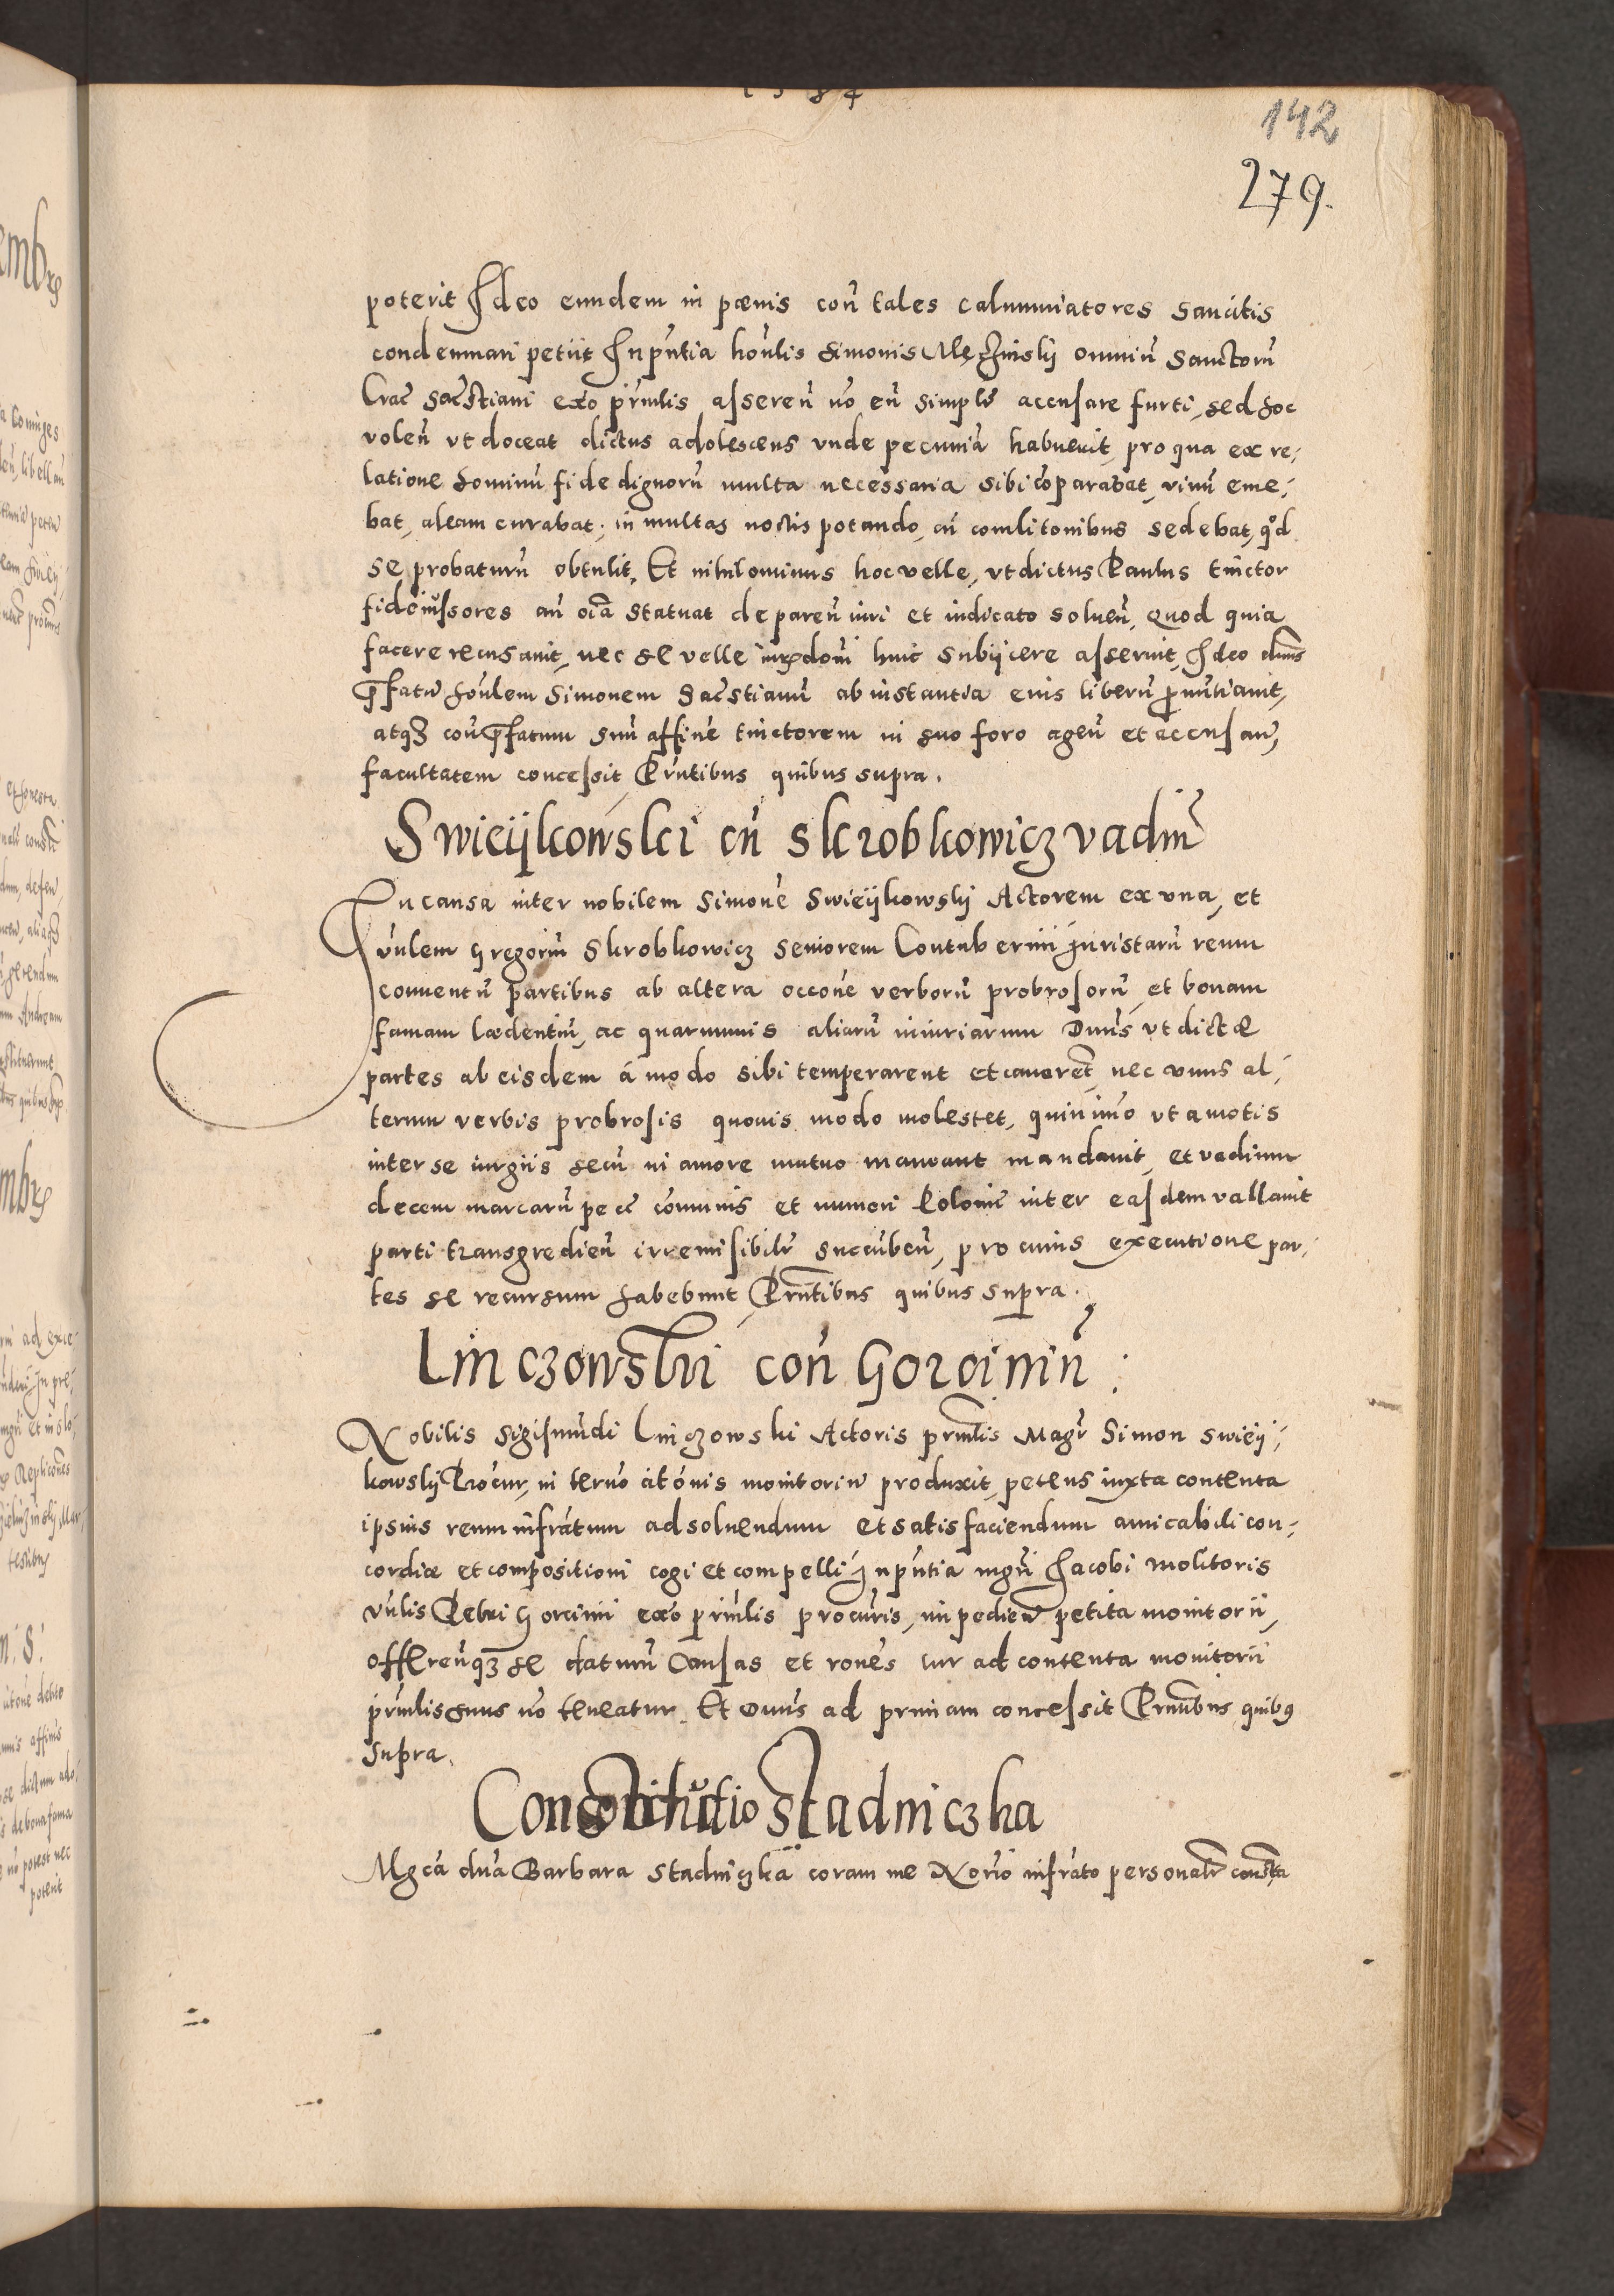 1584
142
279.
poterit Ideo eundem in pœnis coñ tales calumniatores sancitis
condemnari petiit In pñtia hoñlis Simonis omniũ Sanctorũ
Crac̃ sac̃stiani ex̃o pr̃nlis asserẽn ño eũ simplr̃ accusare furti, sed hoc
volẽn vt doceat dictus adolescens vnde pecuniã habuerit, pro qua ex re,
latione hominũ fide dignorũ multa necessaria sibi cõparabat, vinũ eme,
bat, aleam curabat, in multas noctis potando, cũ comlitonibus sedebat, q̊d
se probaturũ obtulit, Et nihilominus hoc velle, vt dictus Paulus tinctor
fideiussores añ oĩa statuat de pareñ iuri et iudicato soluẽn, quod quia
facere recusauit, nec se velle huic subijcere asseruit, Ideo dñus
p̃fatũ hoñlem Simonem Sac̃stianũ ab instantia eius liberũ p̃nũtiauit,
atqʒ coñ p̃fatum suũ affinẽ tinctorem in suo foro agẽn et accusañ,
facultatem concessit Pr̃ntibus quibus supra.
Swieijkowski cũ Skrobkowicz vadiũ
In causa inter nobilem Simonẽ Swieijkowskij Actorem ex vna, et
vñlem Gregoriũ Skrobkowicz seniorem Contubernij Juristarũ reum
conuentũ partibus ab altera occõne verborũ probrosorũ et bonam
famam lædentiũ, ac quarumuis aliarũ iniuriarum Dñus vt dictæ
partes ab eisdem á modo sibi temperarent et cauerẽt, nec vnus al,
terum verbis probrosis quouis modo molestet, quinimo vt amotis
inter se iurgiis secũ in amore mutuo maneant mandauit, et vadium
decem marcarũ pec̃ cõmunis et numeri Polonic̃ inter easdem vallauit
parti transgrediẽn irremisibilr̃ succũbeñ, pro cuius executione par,
tes se recursum habebunt Pr̃ntibus quibus supra.
Linczowski coñ Gorciniũ
Nobilis Sigismũdi Linczowski Actoris prñlis Magr̃ Simon Swieij,
kowskij Procur, in terño citõnis monitoriũ produxit, petens iuxta contenta
ipsius reum infrãtum ad soluendum et satisfaciendum amicabili con,
cordiæ et compositioni cogi et compelli In pñtia mgr̃i Jacobi Molitoris
vñlis Petri Gorcinii ex̃o prñlis procuris, impediẽn petita monitorii,
offerẽnqʒ se daturũ causas et rõnes cur ad contenta monitorii
prñlis suus ño teneatur. Et Dñus ad primam concessit Prñtibus quibꝰ
supra.
Constitutio Stadniczka
Mgcã dñã Barbara Stadniczka coram me Norio infrãto personalr̃ consta